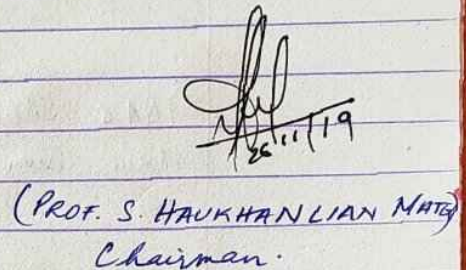 26/11/19
(PROF. S. HAUKHANLIAN MATE)
Chairman.